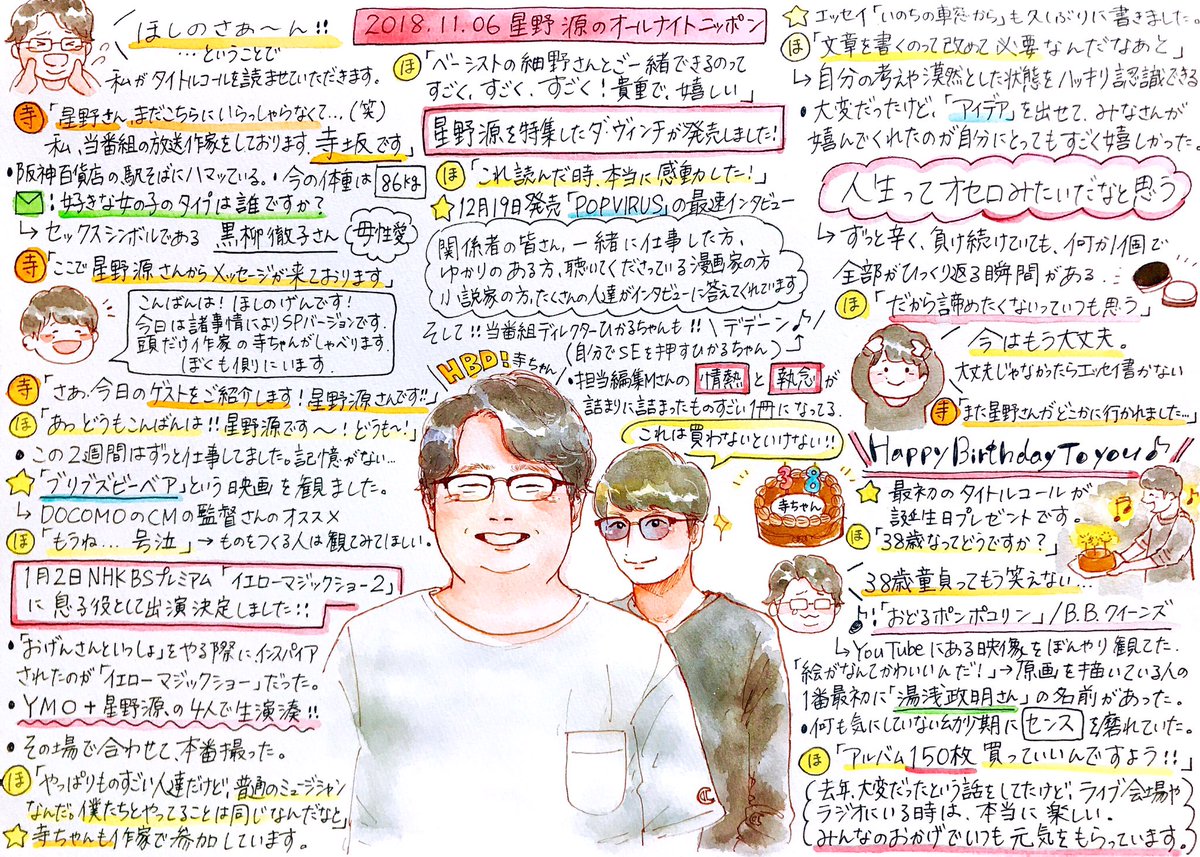 ほしのさぁ〜ん!!
…ということで
私がタイトルコールを読ませていただきます。
寺「星野さん、まだこちらにいらっしゃらなくて…(笑)
私、当番組の放送作家をしております、寺坂です」
・阪神百貨店の駅そばにハマッている。・今の体重は 86kg
:好きな女の子のタイプは誰ですか?
↳ セックスシンボルである 黒柳徹子さん
母性愛
寺「ここで星野源さんからメッセージが来ております」
こんばんは!ほしのげんです!
今日は諸事情によりSPバージョンです。
頭だけ作家の寺ちゃんがしゃべります。
ぼくも側にいます。
寺「さあ、今日のゲストをご紹介します!星野源さんです!!」
ほ「あっどうもこんばんは!!星野源です〜!どうも〜!」
・この2週間はずっと仕事してました。記憶がない…
☆「ブリブズビーベア」という映画を観ました。
↳ DOCOMOのCMの監督さんのオススメ
ほ「もうね… 号泣」→ものをつくる人は観てみてほしい。
1月2日NHK BSプレミアム「イエローマジックショー2」
に息子役として出演決定しました!!
・「おげんさんといっしょ」をやる際に、インスパイア
されたのが「イエローマジックショー」だった。
・YMO+星野源、の4人で生演奏!!
・その場で合わせて、本番撮った。
ほ「やっぱりものすごい人達だけど、普通のミュージシャン
なんだ。僕たちとやってることは同じなんだなと」
☆寺ちゃんも作家で参加しています。
2018.11.06 星野源のオールナイトニッポン
ほ「ベーシストの細野さんとご一緒できるのって
すごく、すごく、すごく!貴重で、嬉しい」
星野源を特集したダ・ヴィンチが発売しました!
ほ「これ読んだ時、本当に感動した!」
☆12月19日発売「POP VIRUS」の最速インタビュー
関係者の皆さん、一緒に仕事した方、
ゆかりのある方、聴いてくださっている漫画家の方
小説家の方、たくさんの人達がインタビューに答えてくれています
そして!!当番組ディレクターひかるちゃんも!!\デデーン♪/
(自分でSEを押すひかるちゃん)
HBD!寺ちゃん
・担当編集Mさんの 情熱 と 執念 が
詰まりに詰まったものすごい1冊になってる。
これは買わないといけない!!
38
寺ちゃん
☆エッセイ「いのちの車窓から」も久しぶりに書きました。
ほ「文章を書くのって改めて必要なんだなあと」
↳自分の考えや漠然とした状態をハッキリ認識できる
・大変だったけど、「アイデア」を出せて、みなさんが
喜んでくれたのが自分にとってもすごく嬉しかった。
人生ってオセロみたいだなと思う
↳ずっと辛く、負け続けていても、何か1個で
全部がひっくり返る瞬間がある…
ほ「だから諦めたくないっていつも思う」
今はもう大丈夫。
大丈夫じゃなかったらエッセイ書かない
寺「また星野さんがどこかに行かれました…」
Happy Birthday To you♪
☆最初のタイトルコールが
誕生日プレゼントです。
ほ「38歳なってどうですか?」
38歳童貞ってもう笑えない…
♪:「おどるポンポコリン」/B.B.クイーンズ
↳YouTubeにある映像をぼんやり観てた。
「絵がなんてかわいいんだ!」→原画を描いている人の
1番最初に「湯浅政明さん」の名前があった。
・何も気にしていない幼少期に センス を磨れていた。
ほ「アルバム150枚買っていいんですよう!!」
(去年、大変だったという話をしてたけど、ライブ会場や
ラジオにいる時は、本当に楽しい。
みんなのおかげでいつも元気をもらっています。)